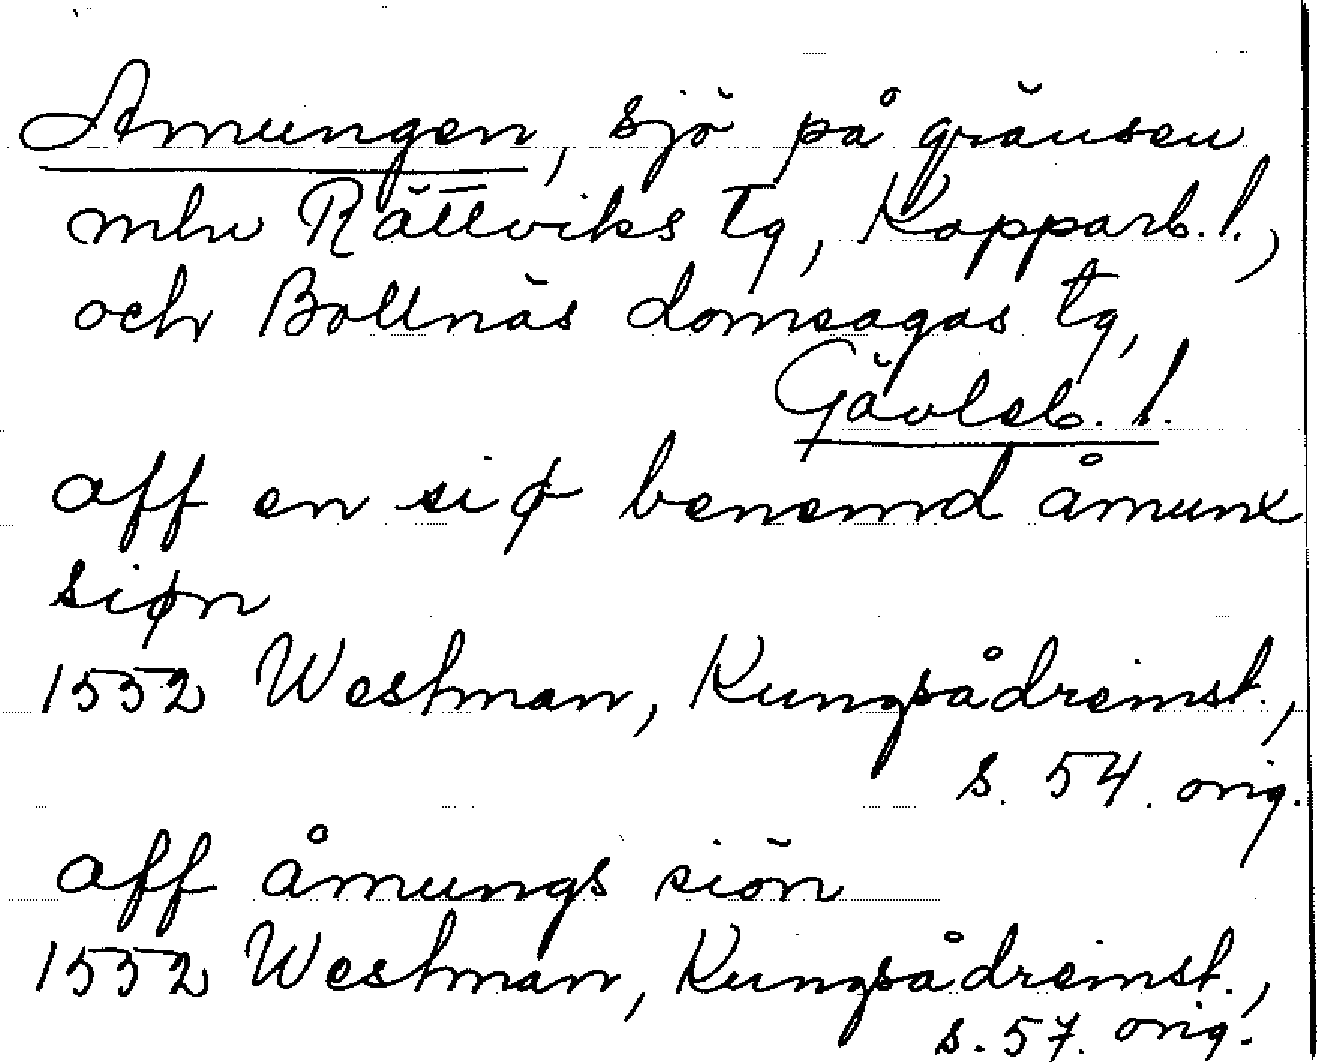 Amungen, sjö på gränsen
mlu Rättviks tg, Kopparb. l.,
och Bollnäs domsagas tg,
Gävleb. l.
aff en siø benemd åmunx
siøn
1552 Westman, Kungsådreinst.,
s. 54. orig.
aff åmungs siön
1552 Westman, Kungsådreinst.,
s. 57. orig.